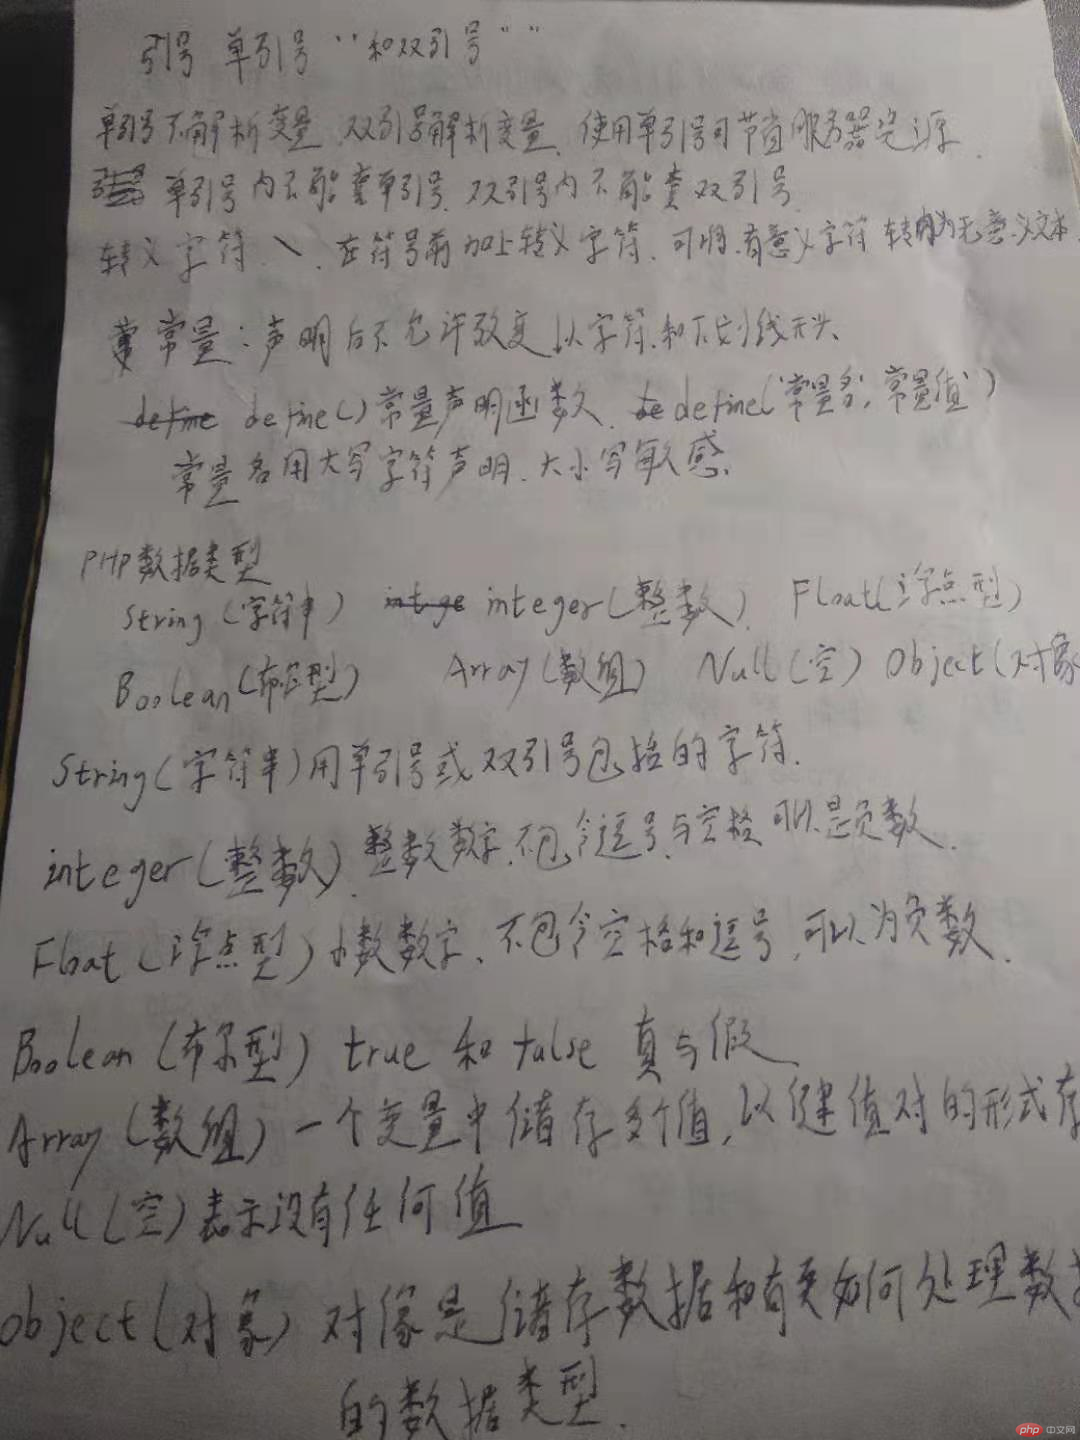 引号 单引号 '' 和双引号 " "
单引号不解析变量 双引号解析变量、使用单引号可节省服务器资源.
单引号内不能套单引号、双引号内不能套双引号.
转义字符、\、在符号前加上转义字符、可将有意义字符转为无意义文本
常量：声明后不允许改变 以字符和下划线开头
define define()常量声明函数、define('常量名','常量值')
常量名用大写字符声明、大小写敏感.
PHP数据类型
String（字符串） intge integer（整数）、Float（浮点型）
Boolean（布尔型） Array（数组） Null（空） Object（对象
String（字符串）用单引号或双引号包括的字符.
integer（整数）、整数数字、不包含逗号与空格 可以是负数.
Float（浮点型）小数数字、不包含空格和逗号,可以为负数.
Boolean（布尔型） true 和 false 真与假
Array（数组）一个变量中储存多个值,以键值对的形式存
Null（空）表示没有任何值
Object（对象）对像是储存数据和有关如何处理数据
的数据类型.
php 中文网